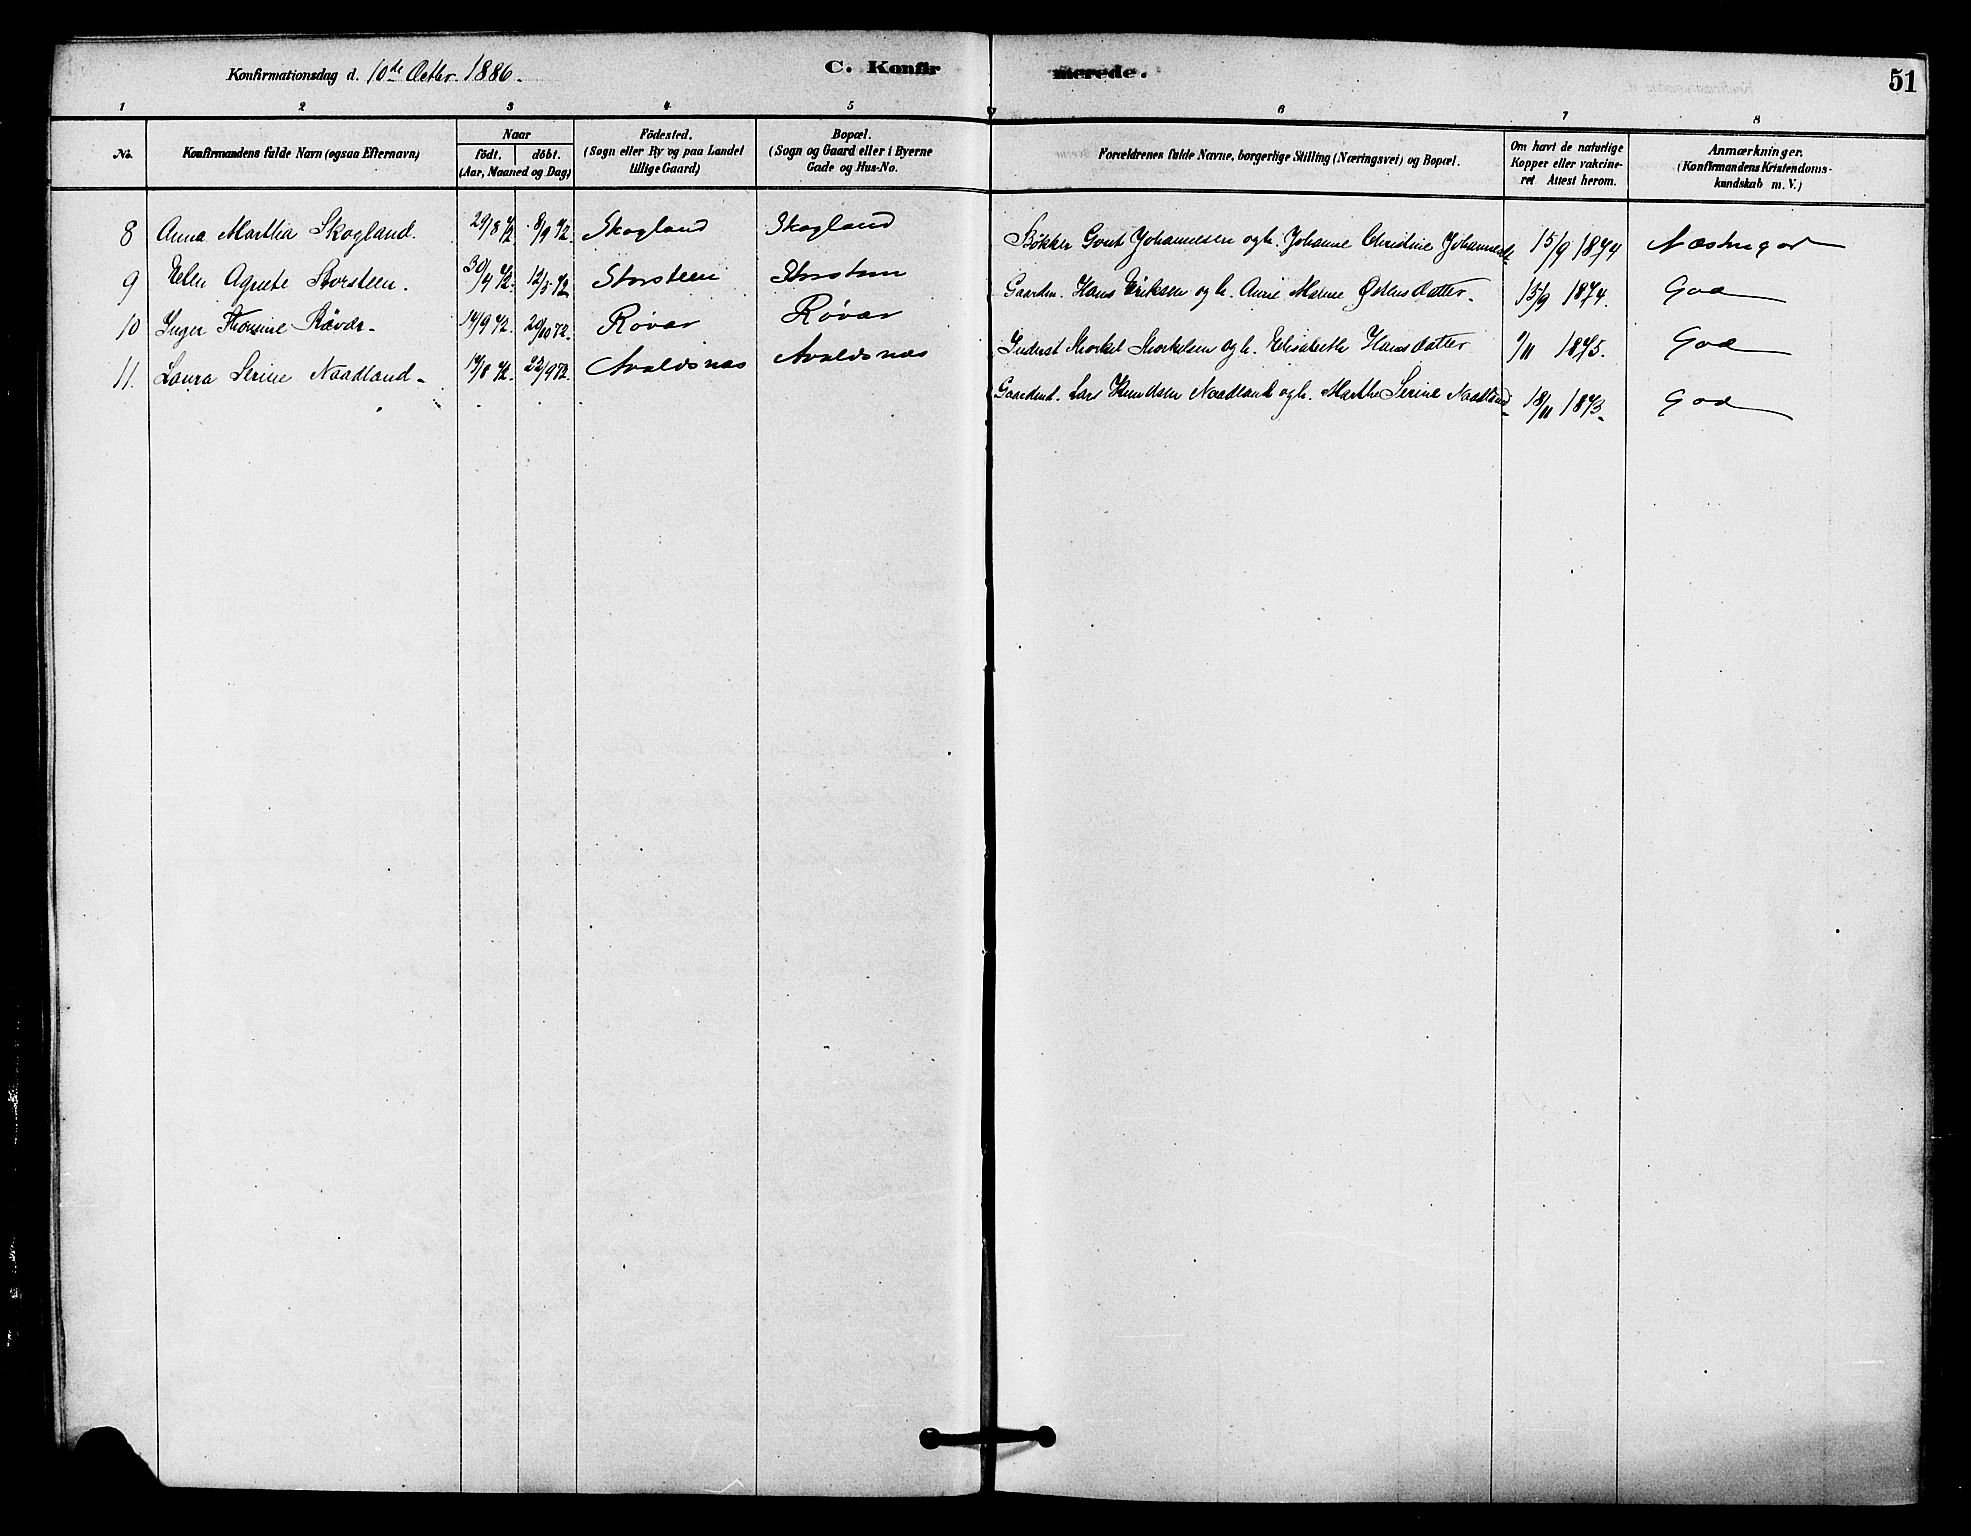 Konfirmationsdag d. 10de Octbr. 1886.
C. Konfirmerede.
51
1 2 3 4 5 6 7 8
No. Konfirmandens fulde Navn (ogsaa Efternavn) Naar födt. döbt. (Aar, Maaned og Dag) Födested. (Sogn eller By og paa Landet tillige Gaard) Bopæl. (Sogn og Gaard eller i Byerne Gade og Hus-No. Forældrenes fulde Navne, borgerlige Stilling (Næringsvei) og Bopæl. Om havt de naturlige Kopper eller vakcineret Attest herom. Anmærkninger. (Konfirmandens Kristendomskundskab m. V.)
8 Anna Marthia Skogland. 29/8 72 8/9 72. Skogland Skogland Bøkker Gout Johannesen og h. Johanne Christine Johannesd. 15/9 1874 Næstengod
9 Elen Agnete Storsteen. 30/4 72. 12/5 72 Storsteen Storsteen Gaardm. Hans Eriksen og h. Anne Malene Østensdatter. 15/9 1874. God
10 Inger Thomine Røvær 14/9 72. 20/10 72. Røvær Røvær Inderst Thorkel Thorkelsen og h. Elisabeth Hansdatter 1/11 1875. God
11. Laura Serine Naadland 14/8 72. 22/9 72. Avaldsnæs Avaldsnæs Gaardmd. Lars Knudsen Naadland og h. Marthe Serine Naadland 18/11 1873. God